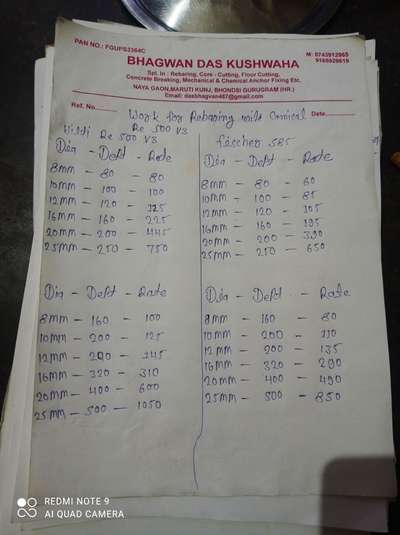 PAN NO.: FGUPS3364C
M: 8743912965
9160928619
BHAGWAN DAS KUSHWAHA
Spl. In : Rebaring, Core - Cutting, Floor Cutting,
Concrete Breaking, Mechanical & Chemical Anchor Fixing Etc.
NAYA GAON,MARUTI KUNJ, BHONDSI GURUGRAM (HR.)
Email: dasbhagvan487@gmail.com
Ref. No. Date
Work for Rebaring with Cmical
Re 500 V3
Hilti Re 500 V3
Dia - Dept - Rate
8mm - 80 - 80
10mm - 100 - 100
12mm - 120 - 125
16mm - 160 - 225
20mm - 200 - 445
25mm - 250 - 750
Fischer 585
Dia - Dept - Rate
8mm - 80 - 60
10mm - 100 - 85
12mm - 120 - 105
16mm - 160 - 195
20mm - 200 - 390
25mm - 250 - 650
Dia - Dept - Rate
8mm - 160 - 100
10mm - 200 - 125
12mm - 200 - 145
16mm - 320 - 310
20mm - 400 - 600
25mm - 500 - 1050
Dia - Dept - Rate
8mm - 160 - 80
10mm - 200 - 110
12mm - 200 - 135
16mm - 320 - 290
20mm - 400 - 490
25mm - 500 - 850
REDMI NOTE 9
AI QUAD CAMERA